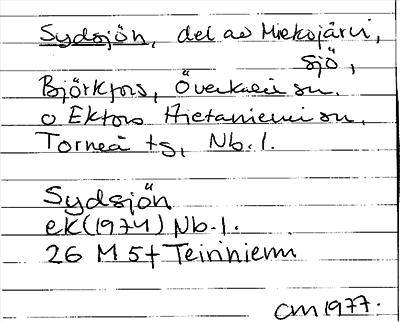 Sydsjön, del av Miekojärvi,
sjö,
Björkfors, Överkalix sn.
o Ekfors Hietaniemi sn,
Torneå ts, Nb.l.
Sydsjön
ek(1974) Nb.l.
26 M 5f Teinniemi
CM1977.